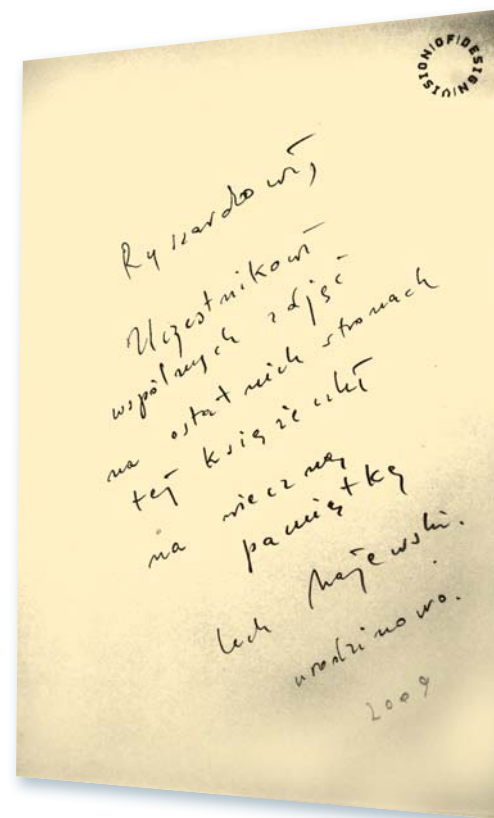 VISION OF DESIGN
Ryszardowi,
Uczestnikowi
wspólnych zdjęć
na ostatnich stronach
tej książeczki
na wieczną
pamiątkę
Lech Majewski.
urodzinowo.
2009